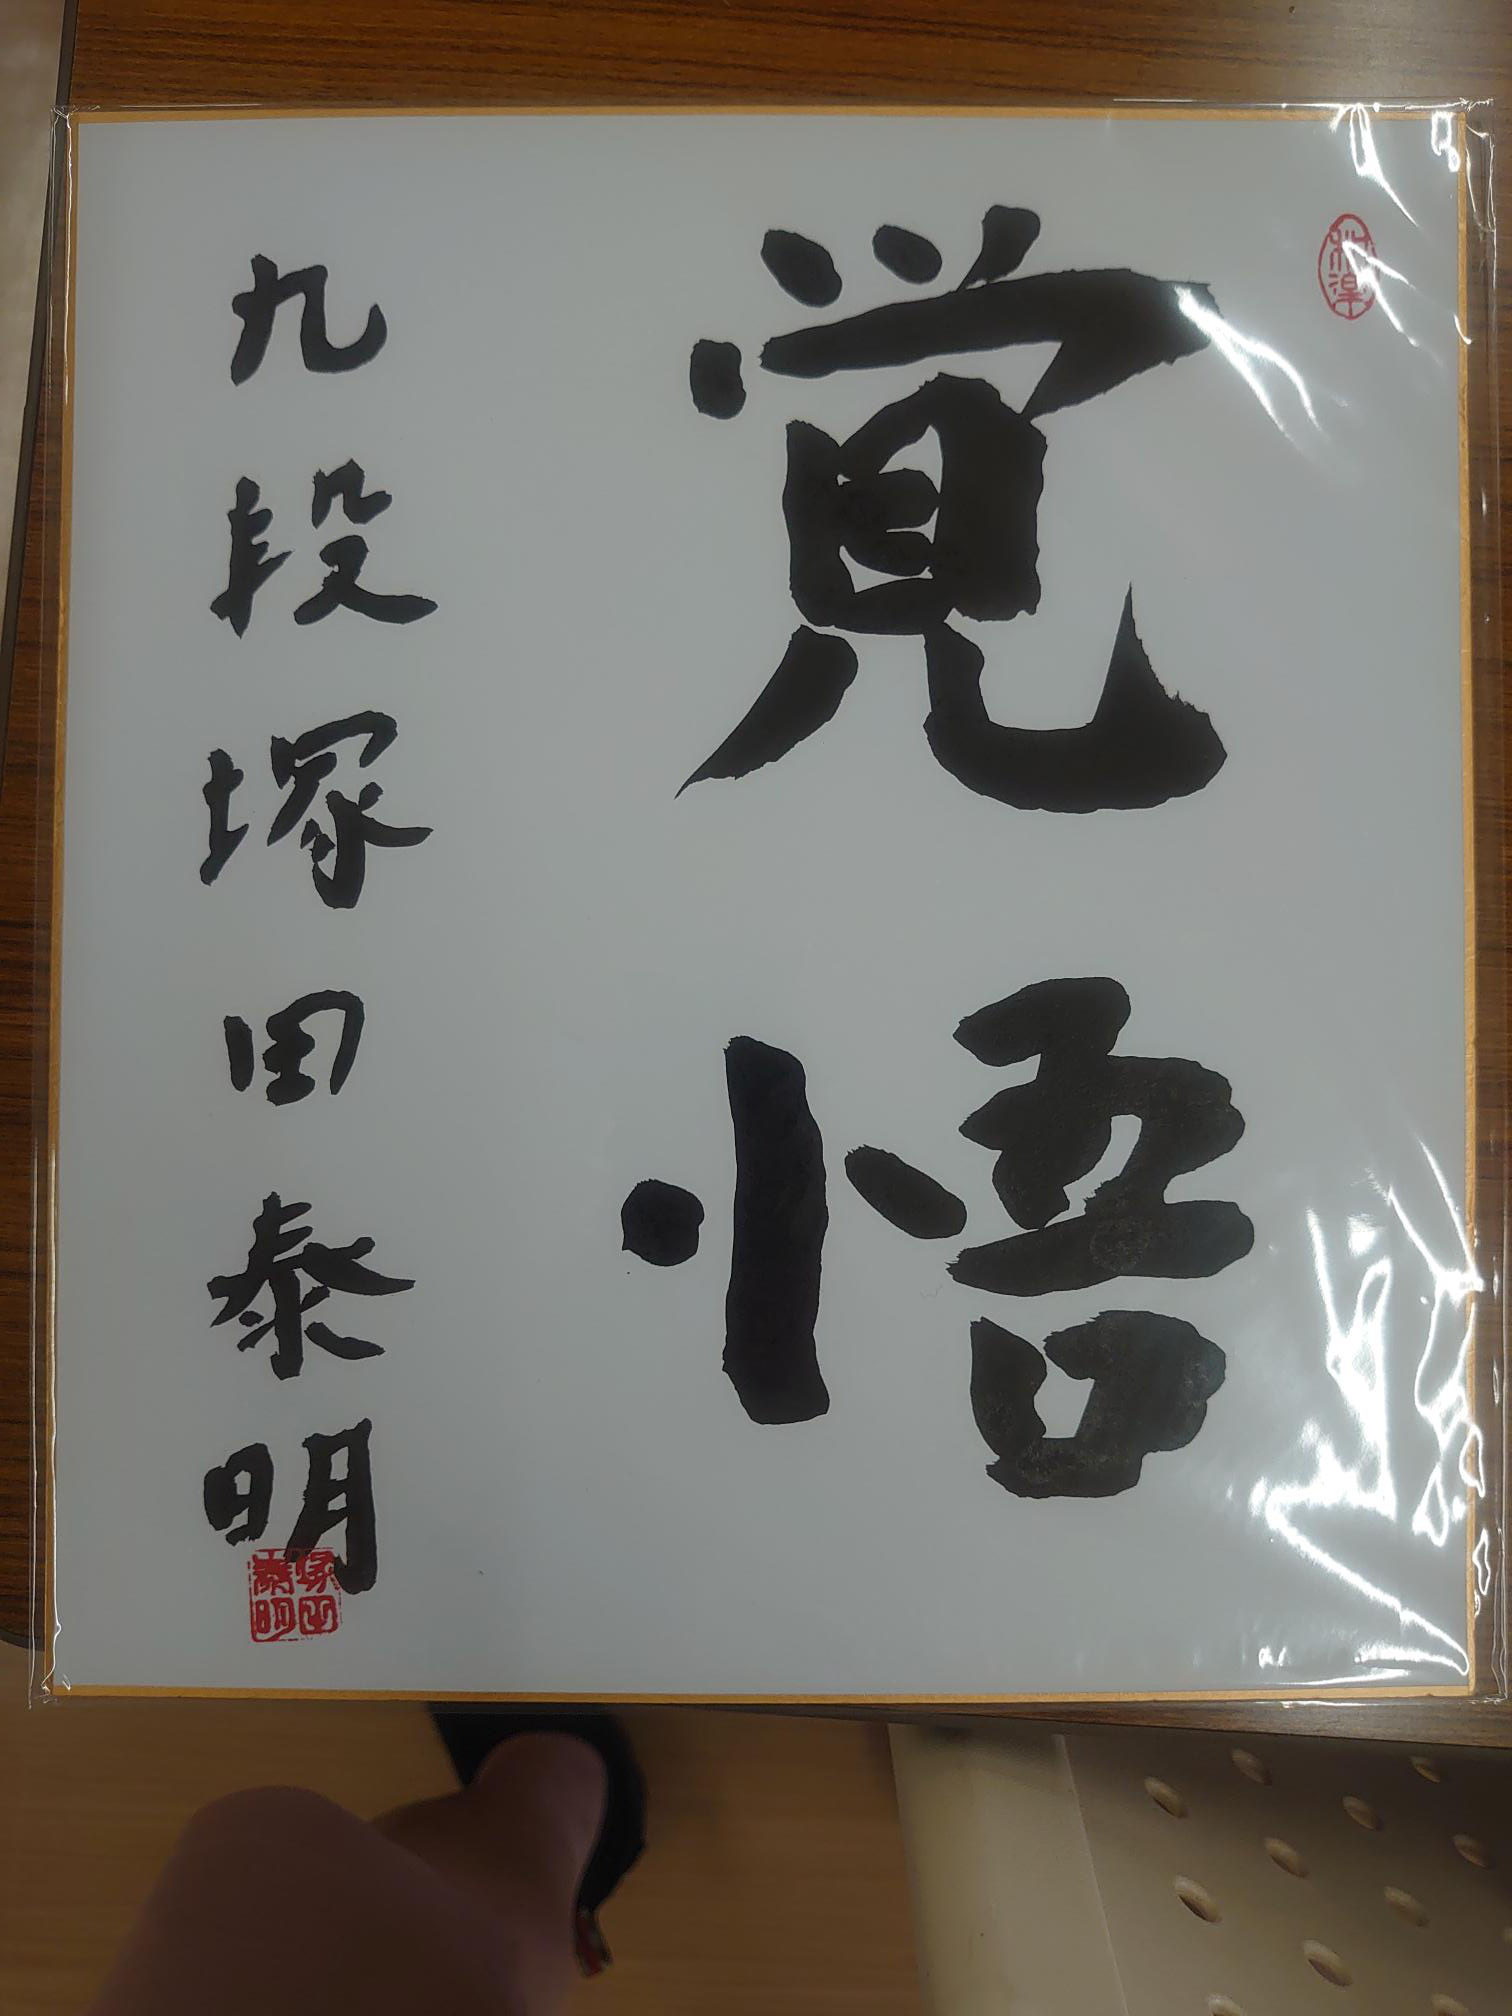 覚悟
九段塚田泰明
塚田
泰明